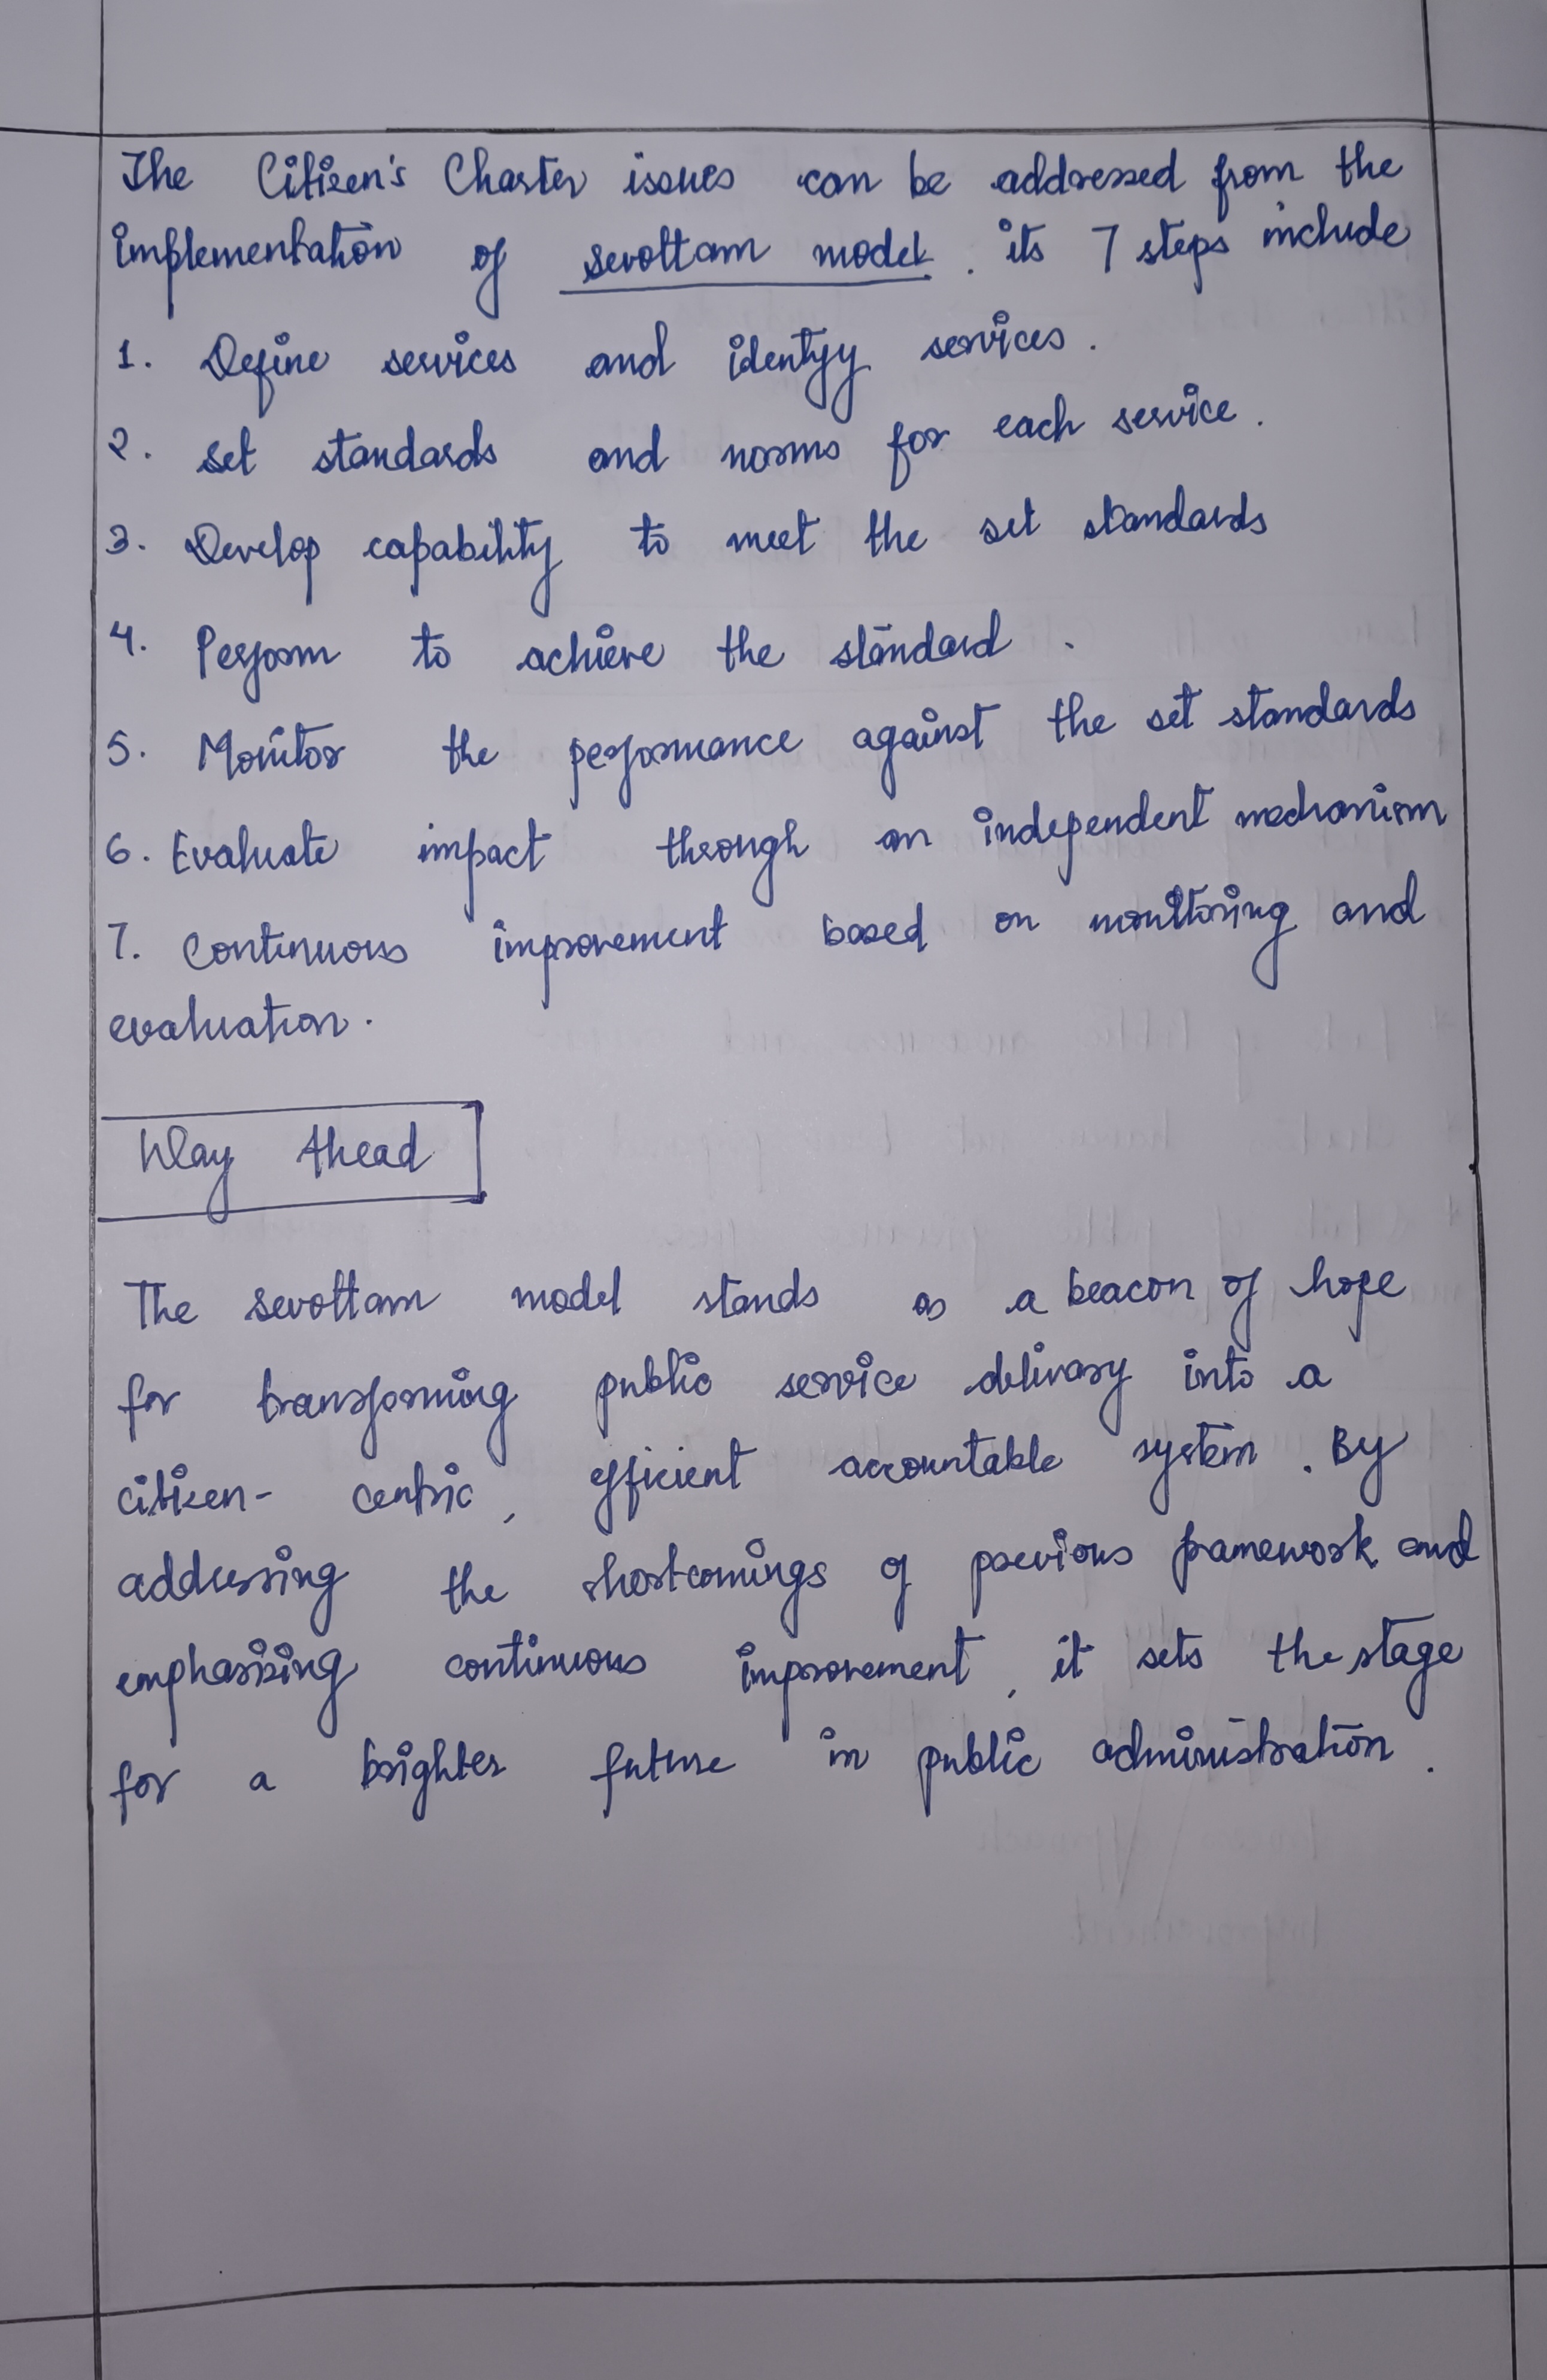 The Citizen's Charter issues can be addressed from the
implementation of sevottam model. its 7 steps include
1. Define services and identify services.
2. set standards and norms for each service.
3. Develop capability to meet the set standards
4. Perform to achieve the standard.
5. Monitor the performance against the set standards
6. Evaluate impact through an independent mechanism
7. Continuous improvement based on monitoring and
evaluation.
Way Ahead
The sevottam model stands as a beacon of hope
for transforming public service delivary into a
citizen-centric, efficient accountable system. By
addressing the shortcomings of previous framework and
emphasizing continuous improvement, it sets the stage
for a brighter future in public administration.